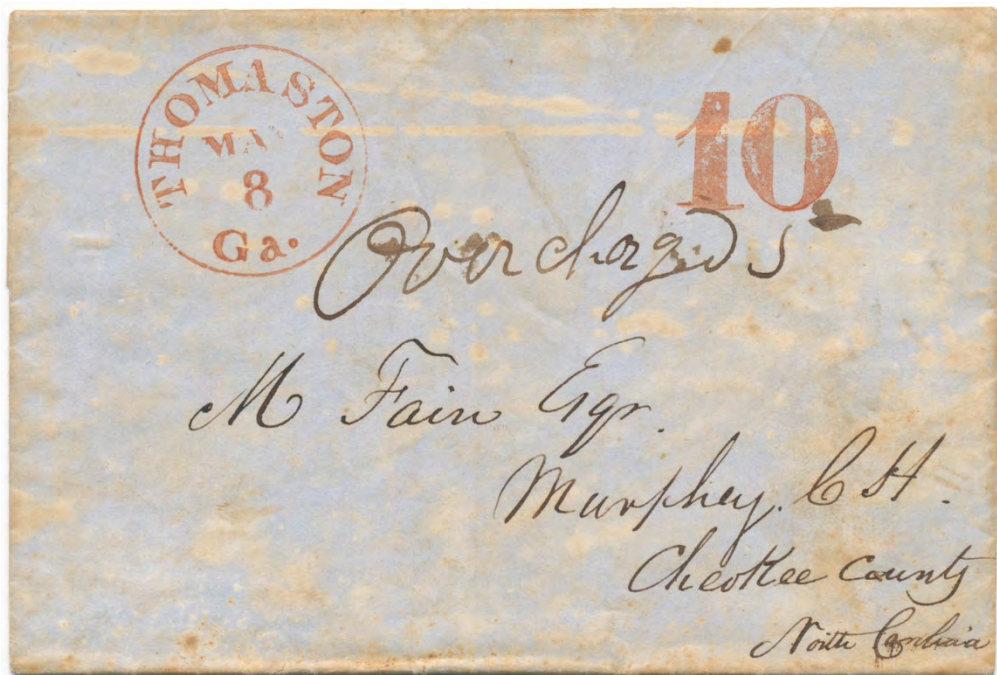 THOMASTON
8
Ga.
10
Overcharged 5
M Fain Esqr.
Murphey. C H.
Cheokee County
North Carolina